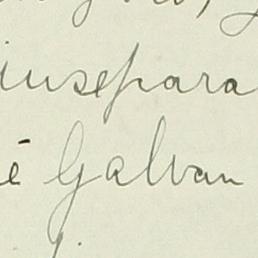 insepara
é Galvan